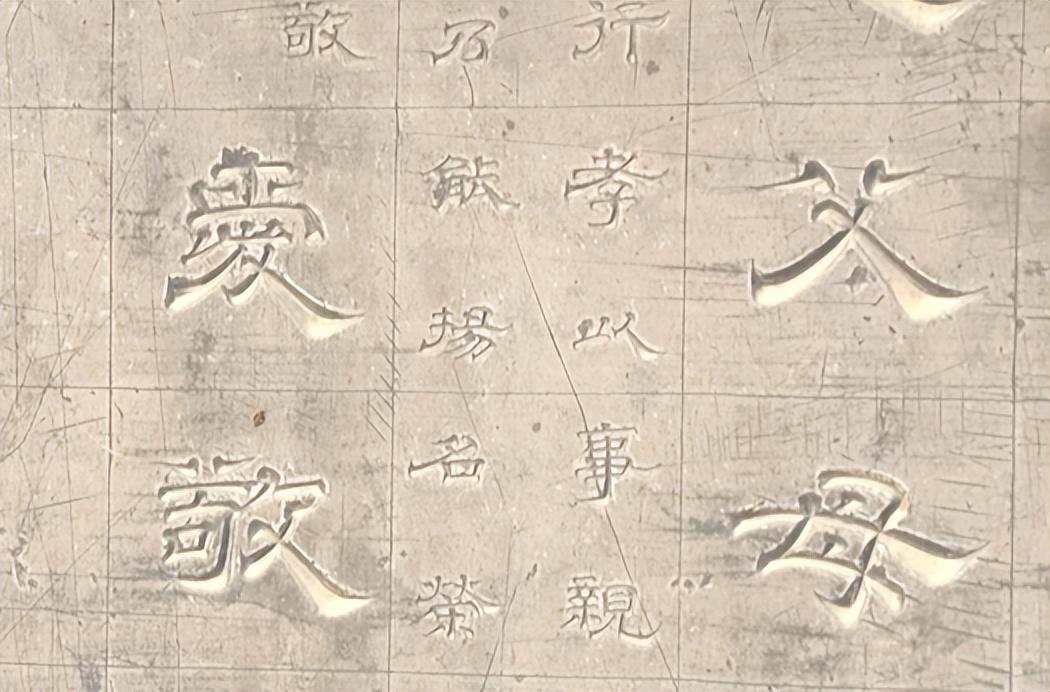 父母
行孝以事親
乃能揚名榮
敬
愛敬